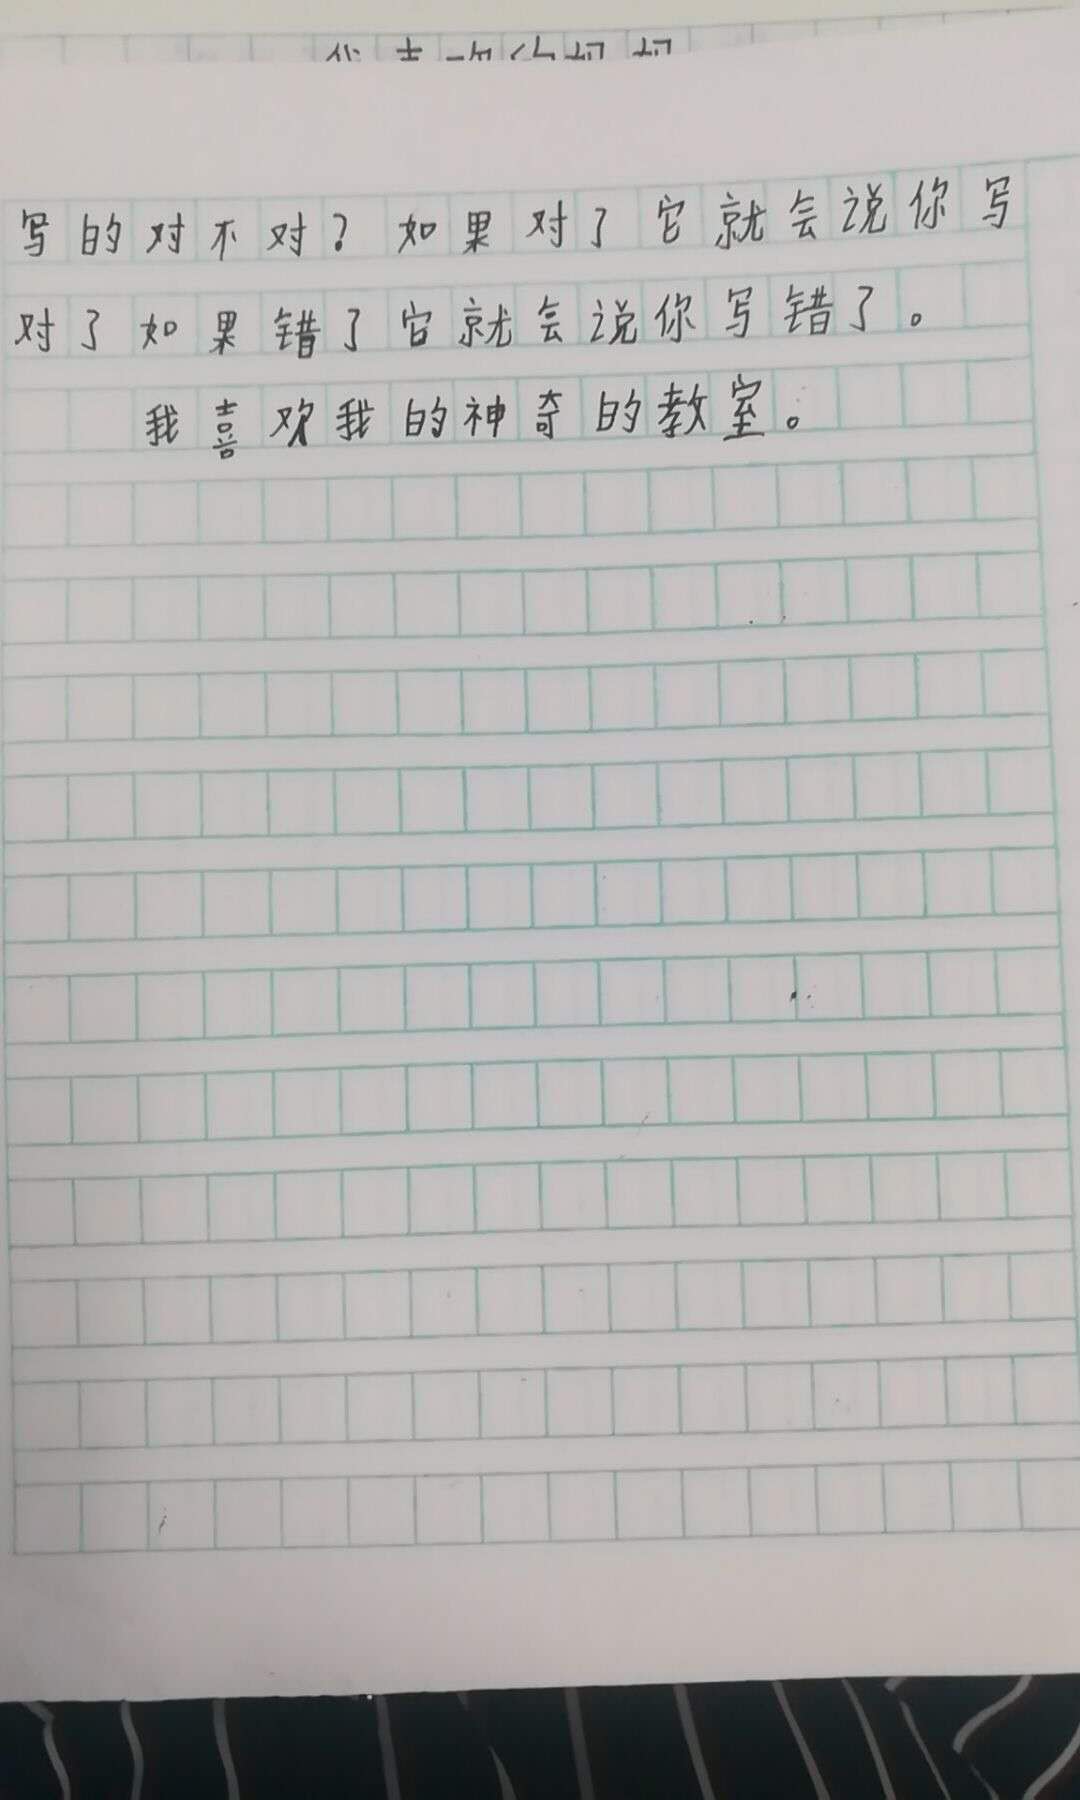 写的对不对？如果对了它就会说你写
对了如果错了它就会说你写错了。
我喜欢我的神奇的教室。